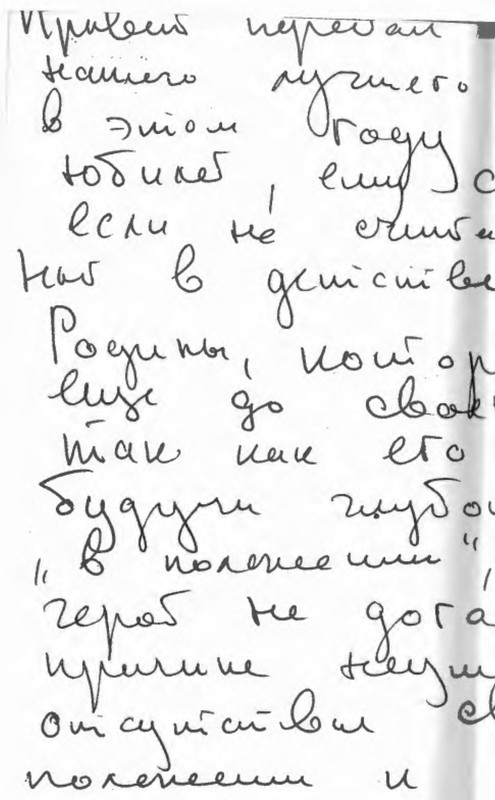 Привет передал
нашего лучшего
в этом году
юбилей, ему с
если не счита
ной в детстве
Родины, котор
еще до свое
так как его
будучи глубо
„в положении“,
герой не дога
причине неум
отсутствия св
положении и